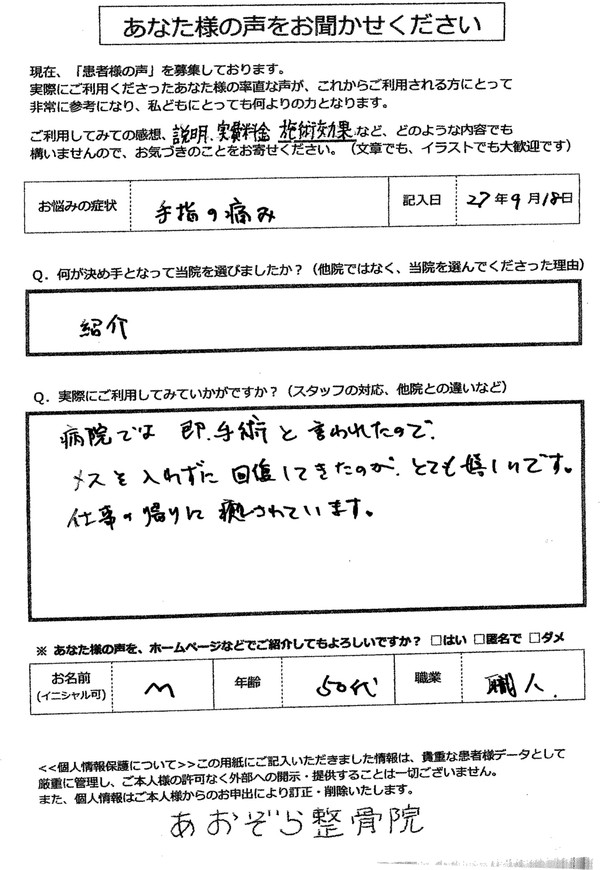 あなた様の声をお聞かせください
現在、「患者様の声」を募集しております。
実際にご利用くださったあなた様の率直な声が、これからご利用される方にとって
非常に参考になり、私どもにとっても何よりの力となります。
ご利用してみての感想、説明、実費料金 施術効果 など、どのような内容でも
構いませんので、お気づきのことをお寄せください。（文章でも、イラストでも大歓迎です）
お悩みの症状 手指の痛み 記入日 27年9月18日
Q．何が決め手となって当院を選びましたか？（他院ではなく、当院を選んでくださった理由）
紹介
Q．実際にご利用してみていかがですか？（スタッフの対応、他院との違いなど）
病院では 即、手術と言われたので、
メスを入れずに回復してきたのが、とても嬉しいです。
仕事の帰りに癒されています。
※ あなた様の声を、ホームページなどでご紹介してもよろしいですか？ □はい □匿名で □ダメ
お名前（イニシャル可） M 年齢 50代 職業 職人
<<個人情報保護について>>この用紙にご記入いただきました情報は、貴重な患者様データとして
厳重に管理し、ご本人様の許可なく外部への開示・提供することは一切ございません。
また、個人情報はご本人様からのお申出により訂正・削除いたします。
あおぞら整骨院